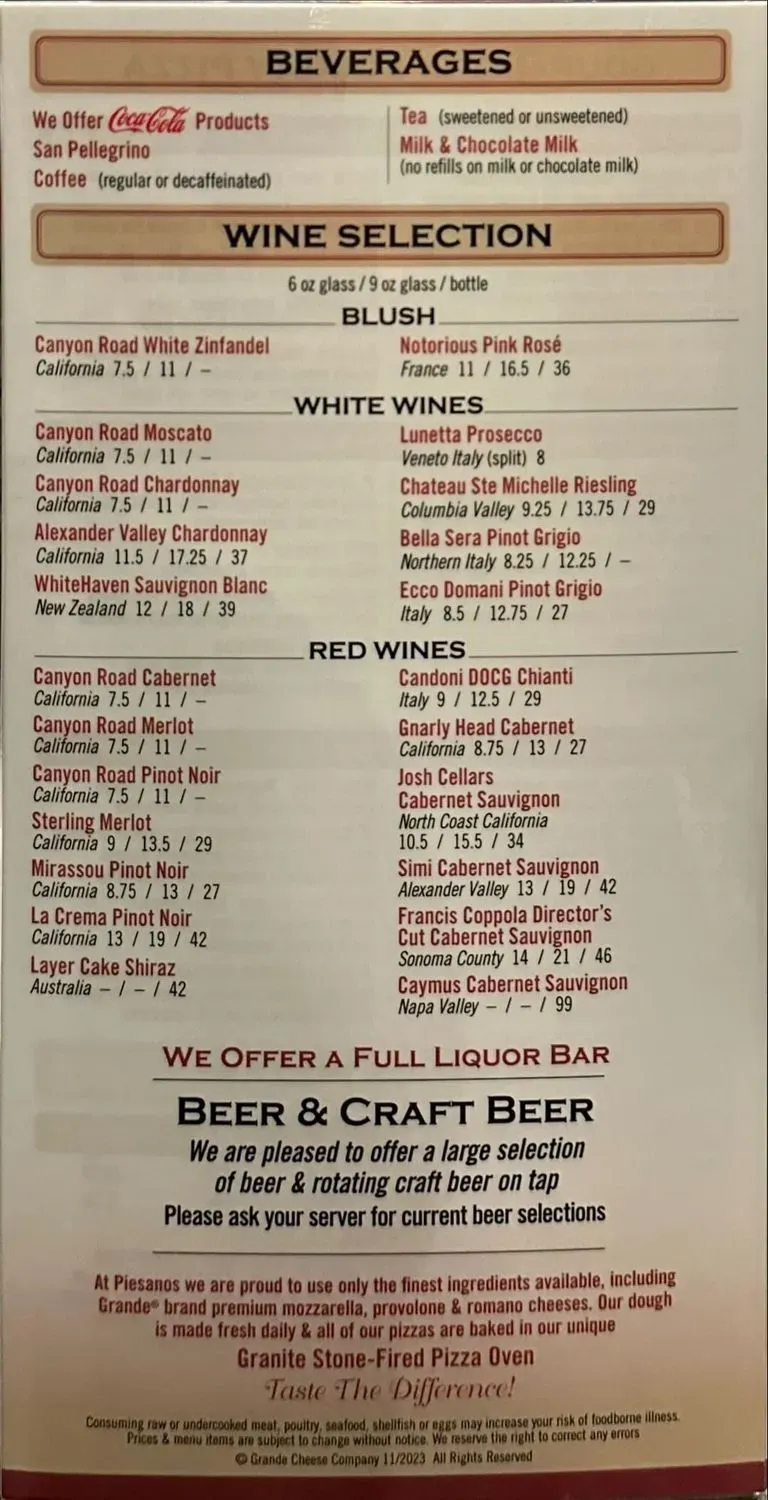 BEVERAGES
We Offer Coca-Cola Products
San Pellegrino
Coffee (regular or decaffeinated)
Tea (sweetened or unsweetened)
Milk & Chocolate Milk
(no refills on milk or chocolate milk)
WINE SELECTION
6 oz glass / 9 oz glass / bottle
BLUSH
Canyon Road White Zinfandel
California 7.5 / 11 / –
Notorious Pink Rosé
France 11 / 16.5 / 36
WHITE WINES
Canyon Road Moscato
California 7.5 / 11 / –
Canyon Road Chardonnay
California 7.5 / 11 / –
Alexander Valley Chardonnay
California 11.5 / 17.25 / 37
WhiteHaven Sauvignon Blanc
New Zealand 12 / 18 / 39
Lunetta Prosecco
Veneto Italy (split) 8
Chateau Ste Michelle Riesling
Columbia Valley 9.25 / 13.75 / 29
Bella Sera Pinot Grigio
Northern Italy 8.25 / 12.25 / –
Ecco Domani Pinot Grigio
Italy 8.5 / 12.75 / 27
RED WINES
Canyon Road Cabernet
California 7.5 / 11 / –
Canyon Road Merlot
California 7.5 / 11 / –
Canyon Road Pinot Noir
California 7.5 / 11 / –
Sterling Merlot
California 9 / 13.5 / 29
Mirassou Pinot Noir
California 8.75 / 13 / 27
La Crema Pinot Noir
California 13 / 19 / 42
Layer Cake Shiraz
Australia – / – / 42
Candoni DOCG Chianti
Italy 9 / 12.5 / 29
Gnarly Head Cabernet
California 8.75 / 13 / 27
Josh Cellars
Cabernet Sauvignon
North Coast California
10.5 / 15.5 / 34
Simi Cabernet Sauvignon
Alexander Valley 13 / 19 / 42
Francis Coppola Director's
Cut Cabernet Sauvignon
Sonoma County 14 / 21 / 46
Caymus Cabernet Sauvignon
Napa Valley – / – / 99
WE OFFER A FULL LIQUOR BAR
BEER & CRAFT BEER
We are pleased to offer a large selection
of beer & rotating craft beer on tap
Please ask your server for current beer selections
At Piesanos we are proud to use only the finest ingredients available, including
Grande® brand premium mozzarella, provolone & romano cheeses. Our dough
is made fresh daily & all of our pizzas are baked in our unique
Granite Stone-Fired Pizza Oven
Taste The Difference!
Consuming raw or undercooked meat, poultry, seafood, shellfish or eggs may increase your risk of foodborne illness.
Prices & menu items are subject to change without notice. We reserve the right to correct any errors
© Grande Cheese Company 11/2023 All Rights Reserved